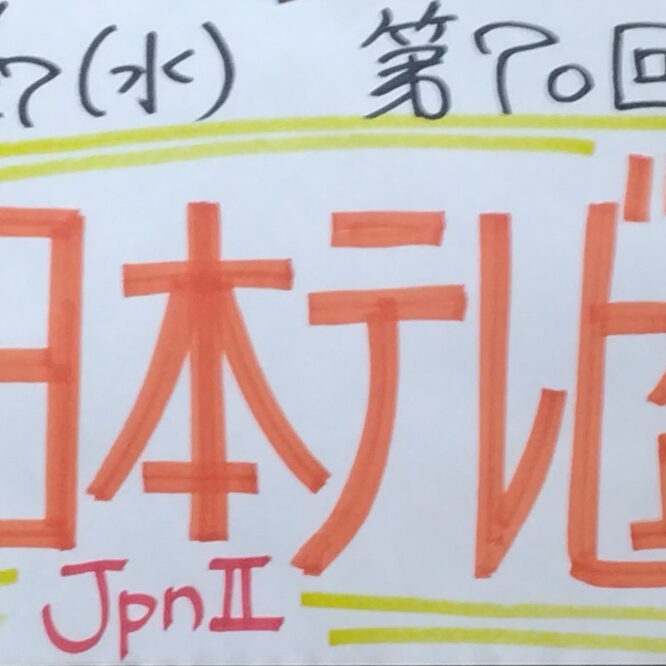 7(水) 第70回
日本テレビ
JpnⅡ